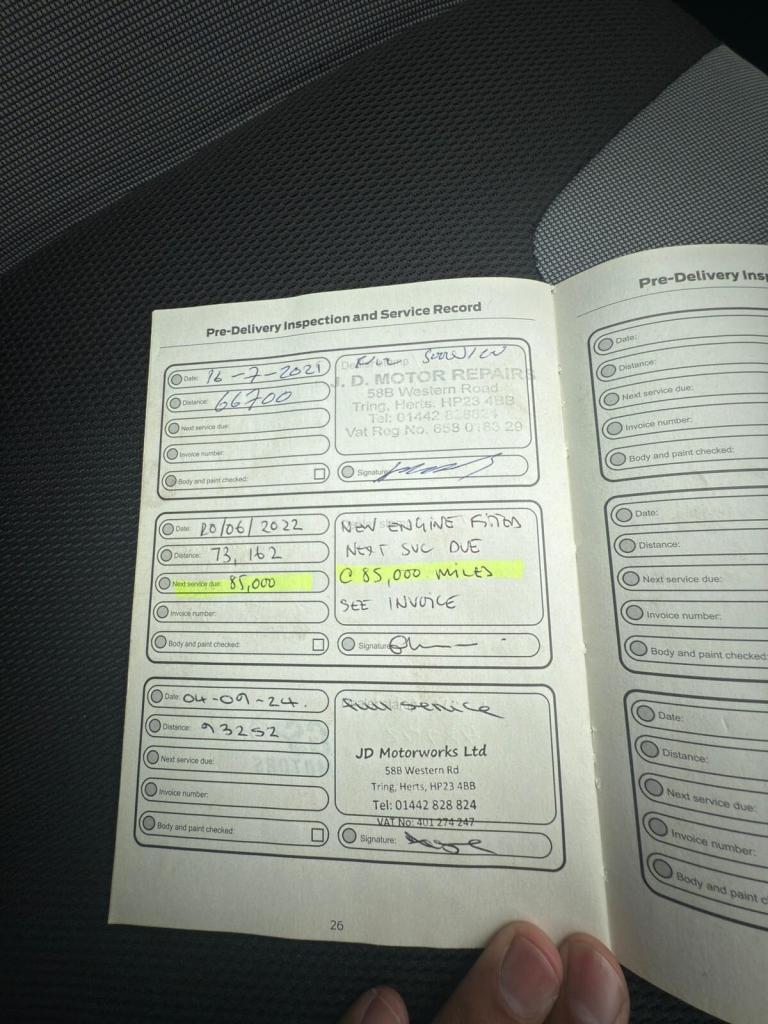 Pre-Delivery Inspection and Service Record
Date: 16-7-2021
Distance: 66700
Next service due:
Invoice number:
Body and paint checked:
J. D. MOTOR REPAIRS
58B Western Road
Tring, Herts, HP23 4BB
Tel: 01442 828824
Vat Reg No. 658 0183 29
Signature:
Date: 20/06/2022
Distance: 73,162
Next service due: 85,000
Invoice number:
Body and paint checked:
NEW ENGINE FITTED
NEXT SVC DUE
@ 85,000 MILES
SEE INVOICE
Signature:
Date: 04-09-24.
Distance: 93252
Next service due:
Invoice number:
Body and paint checked:
Full service
JD Motorworks Ltd
58B Western Rd
Tring, Herts, HP23 4BB
Tel: 01442 828 824
VAT No: 401 274 247
Signature:
26
Pre-Delivery Insp
Date:
Distance:
Next service due:
Invoice number:
Body and paint checked:
Date:
Distance:
Next service due:
Invoice number:
Body and paint checked
Date:
Distance:
Next service due:
Invoice number:
Body and paint c